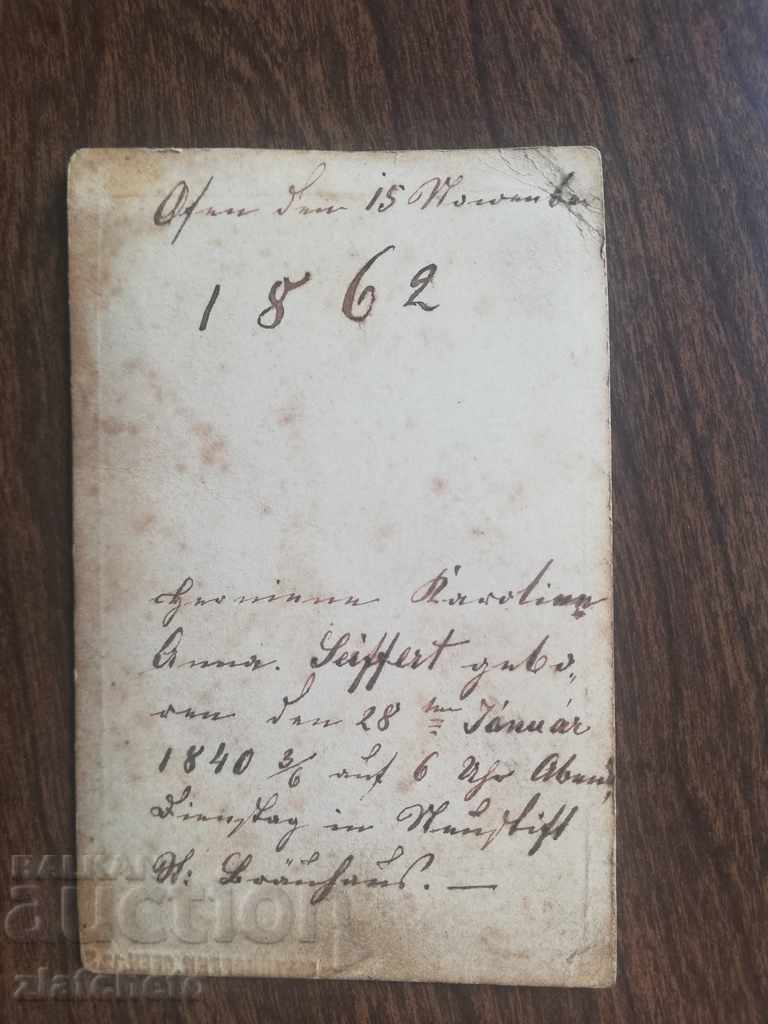 Ofen den 15 November
1862
Hermiene Karoline
Anna. Seiffert gebo„
ren den 28 ten Jánuár
1840 3/6 auf 6 Uhr Abend,
Dienstag in Neustift
N: Bräuhaus. —
BALKAN
auction
zlatcheto